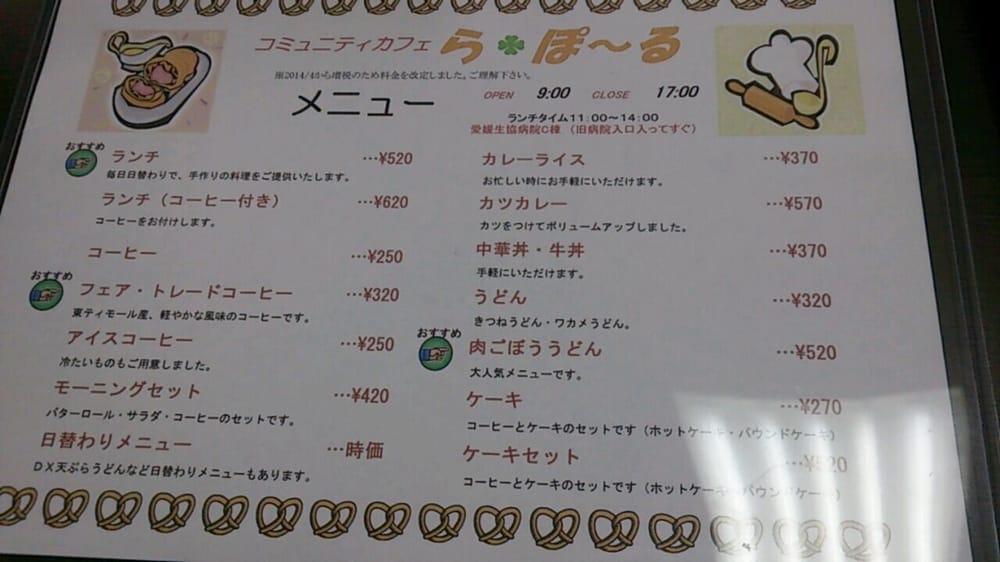 コミュニティカフェ ら・ぽ～る
※2014/4から増税のため料金を改定しました。ご理解下さい。
メニュー OPEN 9:00 CLOSE 17:00
ランチタイム11:00～14:00
愛媛生協病院C棟 （旧病院入口入ってすぐ）
おすすめ
ランチ …¥520
毎日日替わりで、手作りの料理をご提供いたします。
ランチ（コーヒー付き） …¥620
コーヒーをお付けします。
コーヒー …¥250
おすすめ
フェア・トレードコーヒー …¥320
東ティモール産、軽やかな風味のコーヒーです。
アイスコーヒー …¥250
冷たいものもご用意しました。
モーニングセット …¥420
バターロール・サラダ・コーヒーのセットです。
日替わりメニュー …時価
DX天ぷらうどんなど日替わりメニューもあります。
カレーライス …¥370
お忙しい時にお手軽にいただけます。
カツカレー …¥570
カツをつけてボリュームアップしました。
中華丼・牛丼 …¥370
手軽にいただけます。
うどん …¥320
きつねうどん・ワカメうどん。
おすすめ
肉ごぼううどん …¥520
大人気メニューです。
ケーキ …¥270
コーヒーとケーキのセットです（ホットケーキ・パウンドケーキ）
ケーキセット …¥520
コーヒーとケーキのセットです（ホットケーキ・パウンドケーキ）